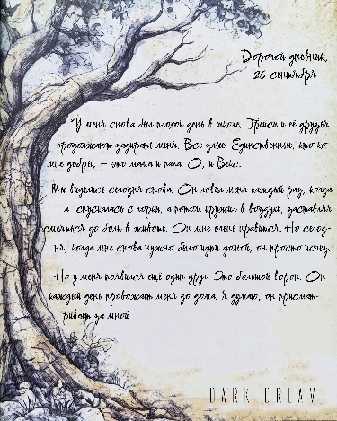 Дорогой дневник,
26 сентября
"У меня снова был плохой день в школе. Трисс и её друзья
продолжают задирать меня. Все злые. Единственные, кто ко
мне добры, – это мама и папа. О, и Векс.
Мы виделись сегодня снова. Он ловил меня каждый раз, когда
я спускалась с горки, а потом кружил в воздухе, заставляя
смеяться до боли в животе. Он мне очень нравится. Но сегод-
ня, когда мне снова нужно было идти домой, он просто исчез.
Но у меня появился ещё один друг. Это большой ворон. Он
каждый день провожает меня до дома. Я думаю, он присмат-
ривает за мной
DARK DREAM